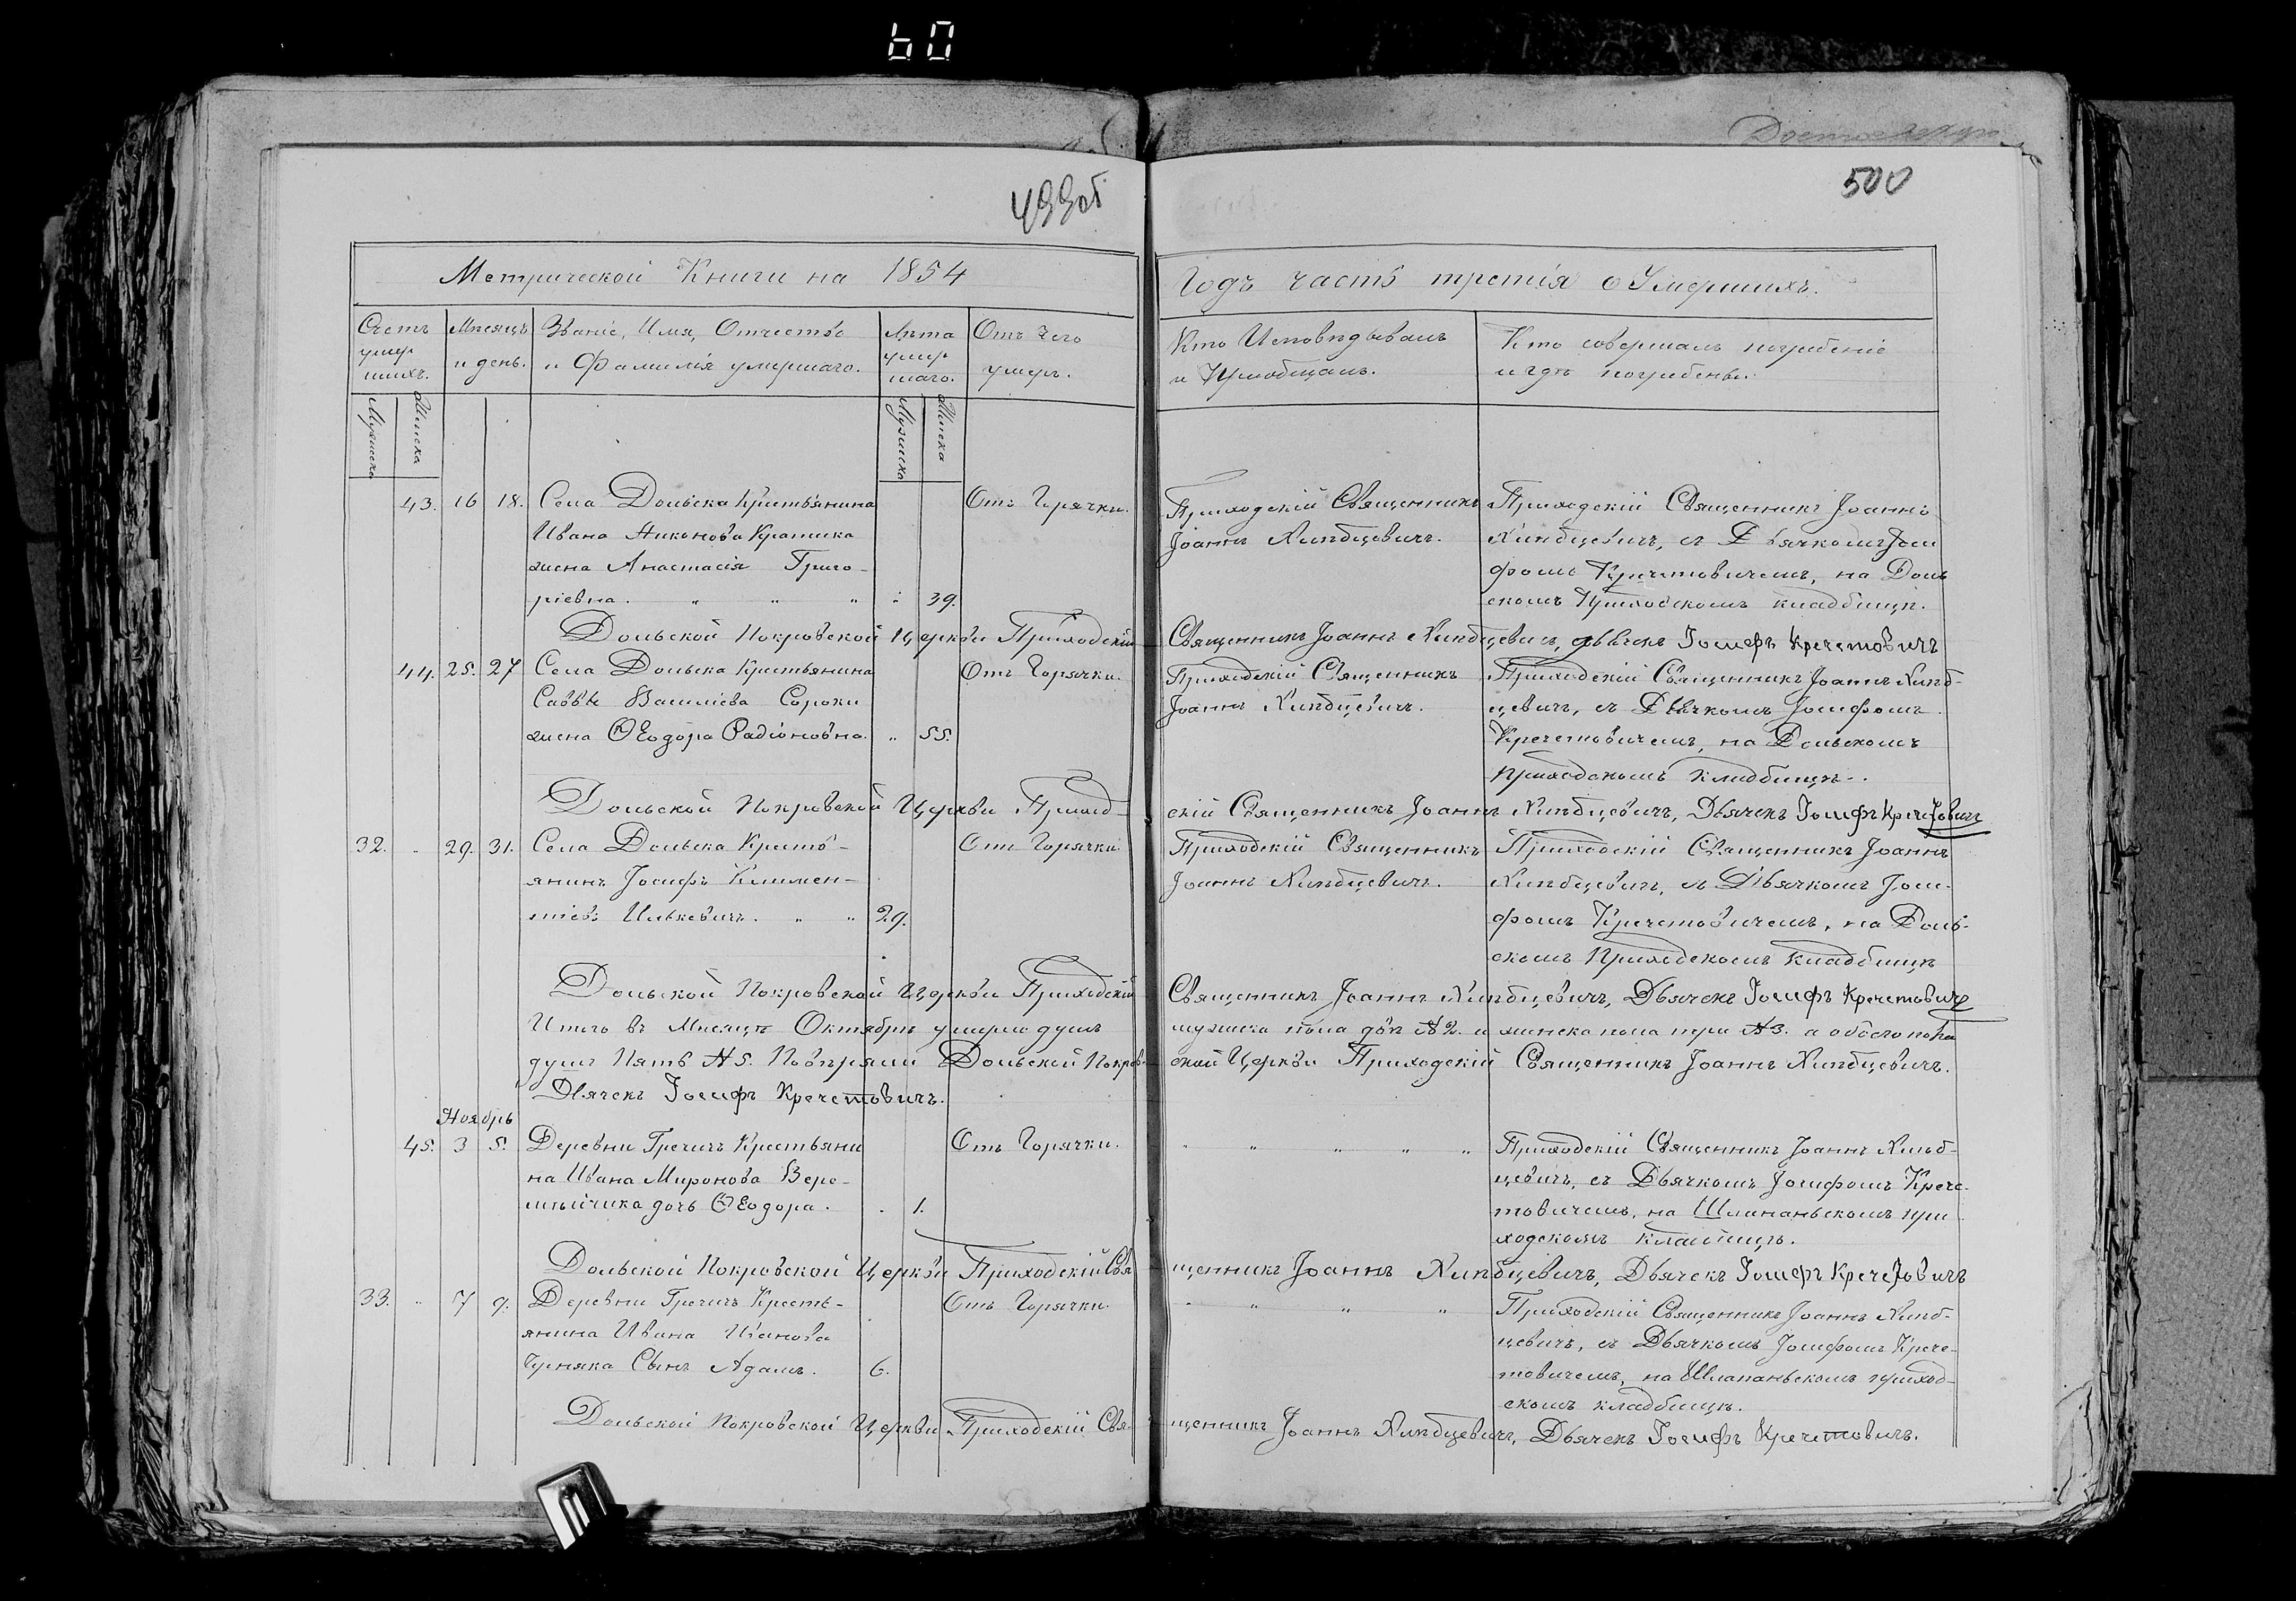 60
499об
500
Метрической Книги на 1854
Годъ часть третія о Умершихъ.
Счетъ умер шихъ.
Мѣсяцъ и день.
Званіе, Имя, Отчество и Фамилія умершаго.
Лѣта умер шаго.
Отъ чего умеръ.
Кто Исповѣдывалъ и Пріобщалъ.
Кто совершалъ погребеніе и гдѣ погребены.
Мужеска
Женска
Мужеска
Женска
43. 16 18. Села Дольска Крестьянина
Ивана Никонова Кратика
жена Анастасія Григо-
ріевна. " " " " 39.
Отъ Горячки.
Приходскій Священникъ
Іоаннъ Хлѣбцевичъ.
Приходскій Священникъ Іоаннъ
Хлѣбцевичъ, съ Дьячкомъ Іоси
фомъ Кречетовичемъ, на Доль
скомъ Приходскомъ кладбищѣ.
Дольской Покровской Церкви Приходскій Священникъ Іоаннъ Хлѣбцевичъ, Дьячекъ Іосифъ Кречетовичъ
44. 25. 27 Села Дольска Крестьянина
Саввы Василіева Сороки
жена Ѳеодора Радіоновна. " 55.
Отъ Горячки.
Приходскій Священникъ
Іоаннъ Хлѣбцевичъ.
Приходскій Священникъ Іоаннъ Хлѣб-
цевичъ, съ Дьячкомъ Іосифомъ
Кречетовичемъ, на Дольскомъ
приходскомъ Кладбищѣ.
Дольской Покровской Церкви Приход- скій Священникъ Іоаннъ Хлѣбцевичъ, Дьячекъ Іосифъ Кречетовичъ
32. " 29. 31. Села Дольска Кресть-
янинъ Іосифъ Климен-
тіевъ Илькевичъ. " " 29.
Отъ Горячки
Приходскій Священникъ
Іоаннъ Хлѣбцевичъ.
Приходскій Священникъ Іоаннъ
Хлѣбцевичъ, съ Дьячкомъ Іоси-
фомъ Кречетовичемъ, на Доль-
скомъ Приходскомъ Кладбищѣ
Дольской Покровской Церкви Приходскій Священникъ Іоаннъ Хлѣбцевичъ, Дьячекъ Іосифъ Кречетовичъ
Итого въ Мѣсяцѣ Октябрѣ умерло душъ мужеска пола двѣ №2. и женска пола три №3. а обоего пола
душъ Пять №5. Повѣряли Дольской Покров- ской Церкви Приходскій Священникъ Іоаннъ Хлѣбцевичъ.
Дьячекъ Іосифъ Кречетовичъ.
Ноябрь
45. 3 5. Деревни Гречичъ Крестьяни
на Ивана Миронова Вере-
дочь Ѳеодора. . 1.
Отъ Горячки.
" " " " "
Приходскій Священникъ Іоаннъ Хлѣб-
цевичъ, съ Дьячкомъ Іосифомъ Крече-
товичемъ, на Шлапаньскомъ при
ходскомъ кладбищѣ.
Дольской Покровской Церкви Приходскій Свя щенникъ Іоаннъ Хлѣбцевичъ, Дьячекъ Іосифъ Кречетовичъ
33. " 7 9. Деревни Гречичъ Кресть-
янина Ивана Иванова
Сынъ Адамъ. 6.
Отъ Горячки.
" " " "
Приходскій Священникъ Іоаннъ Хлѣб-
цевичъ, съ Дьячкомъ Іосифомъ Крече-
товичемъ, на Шлапаньскомъ приход-
скомъ кладбищѣ.
Дольской Покровской Церкви Приходскій Свя- щенникъ Іоаннъ Хлѣбцевичъ, Дьячекъ Іосифъ Кречетовичъ.